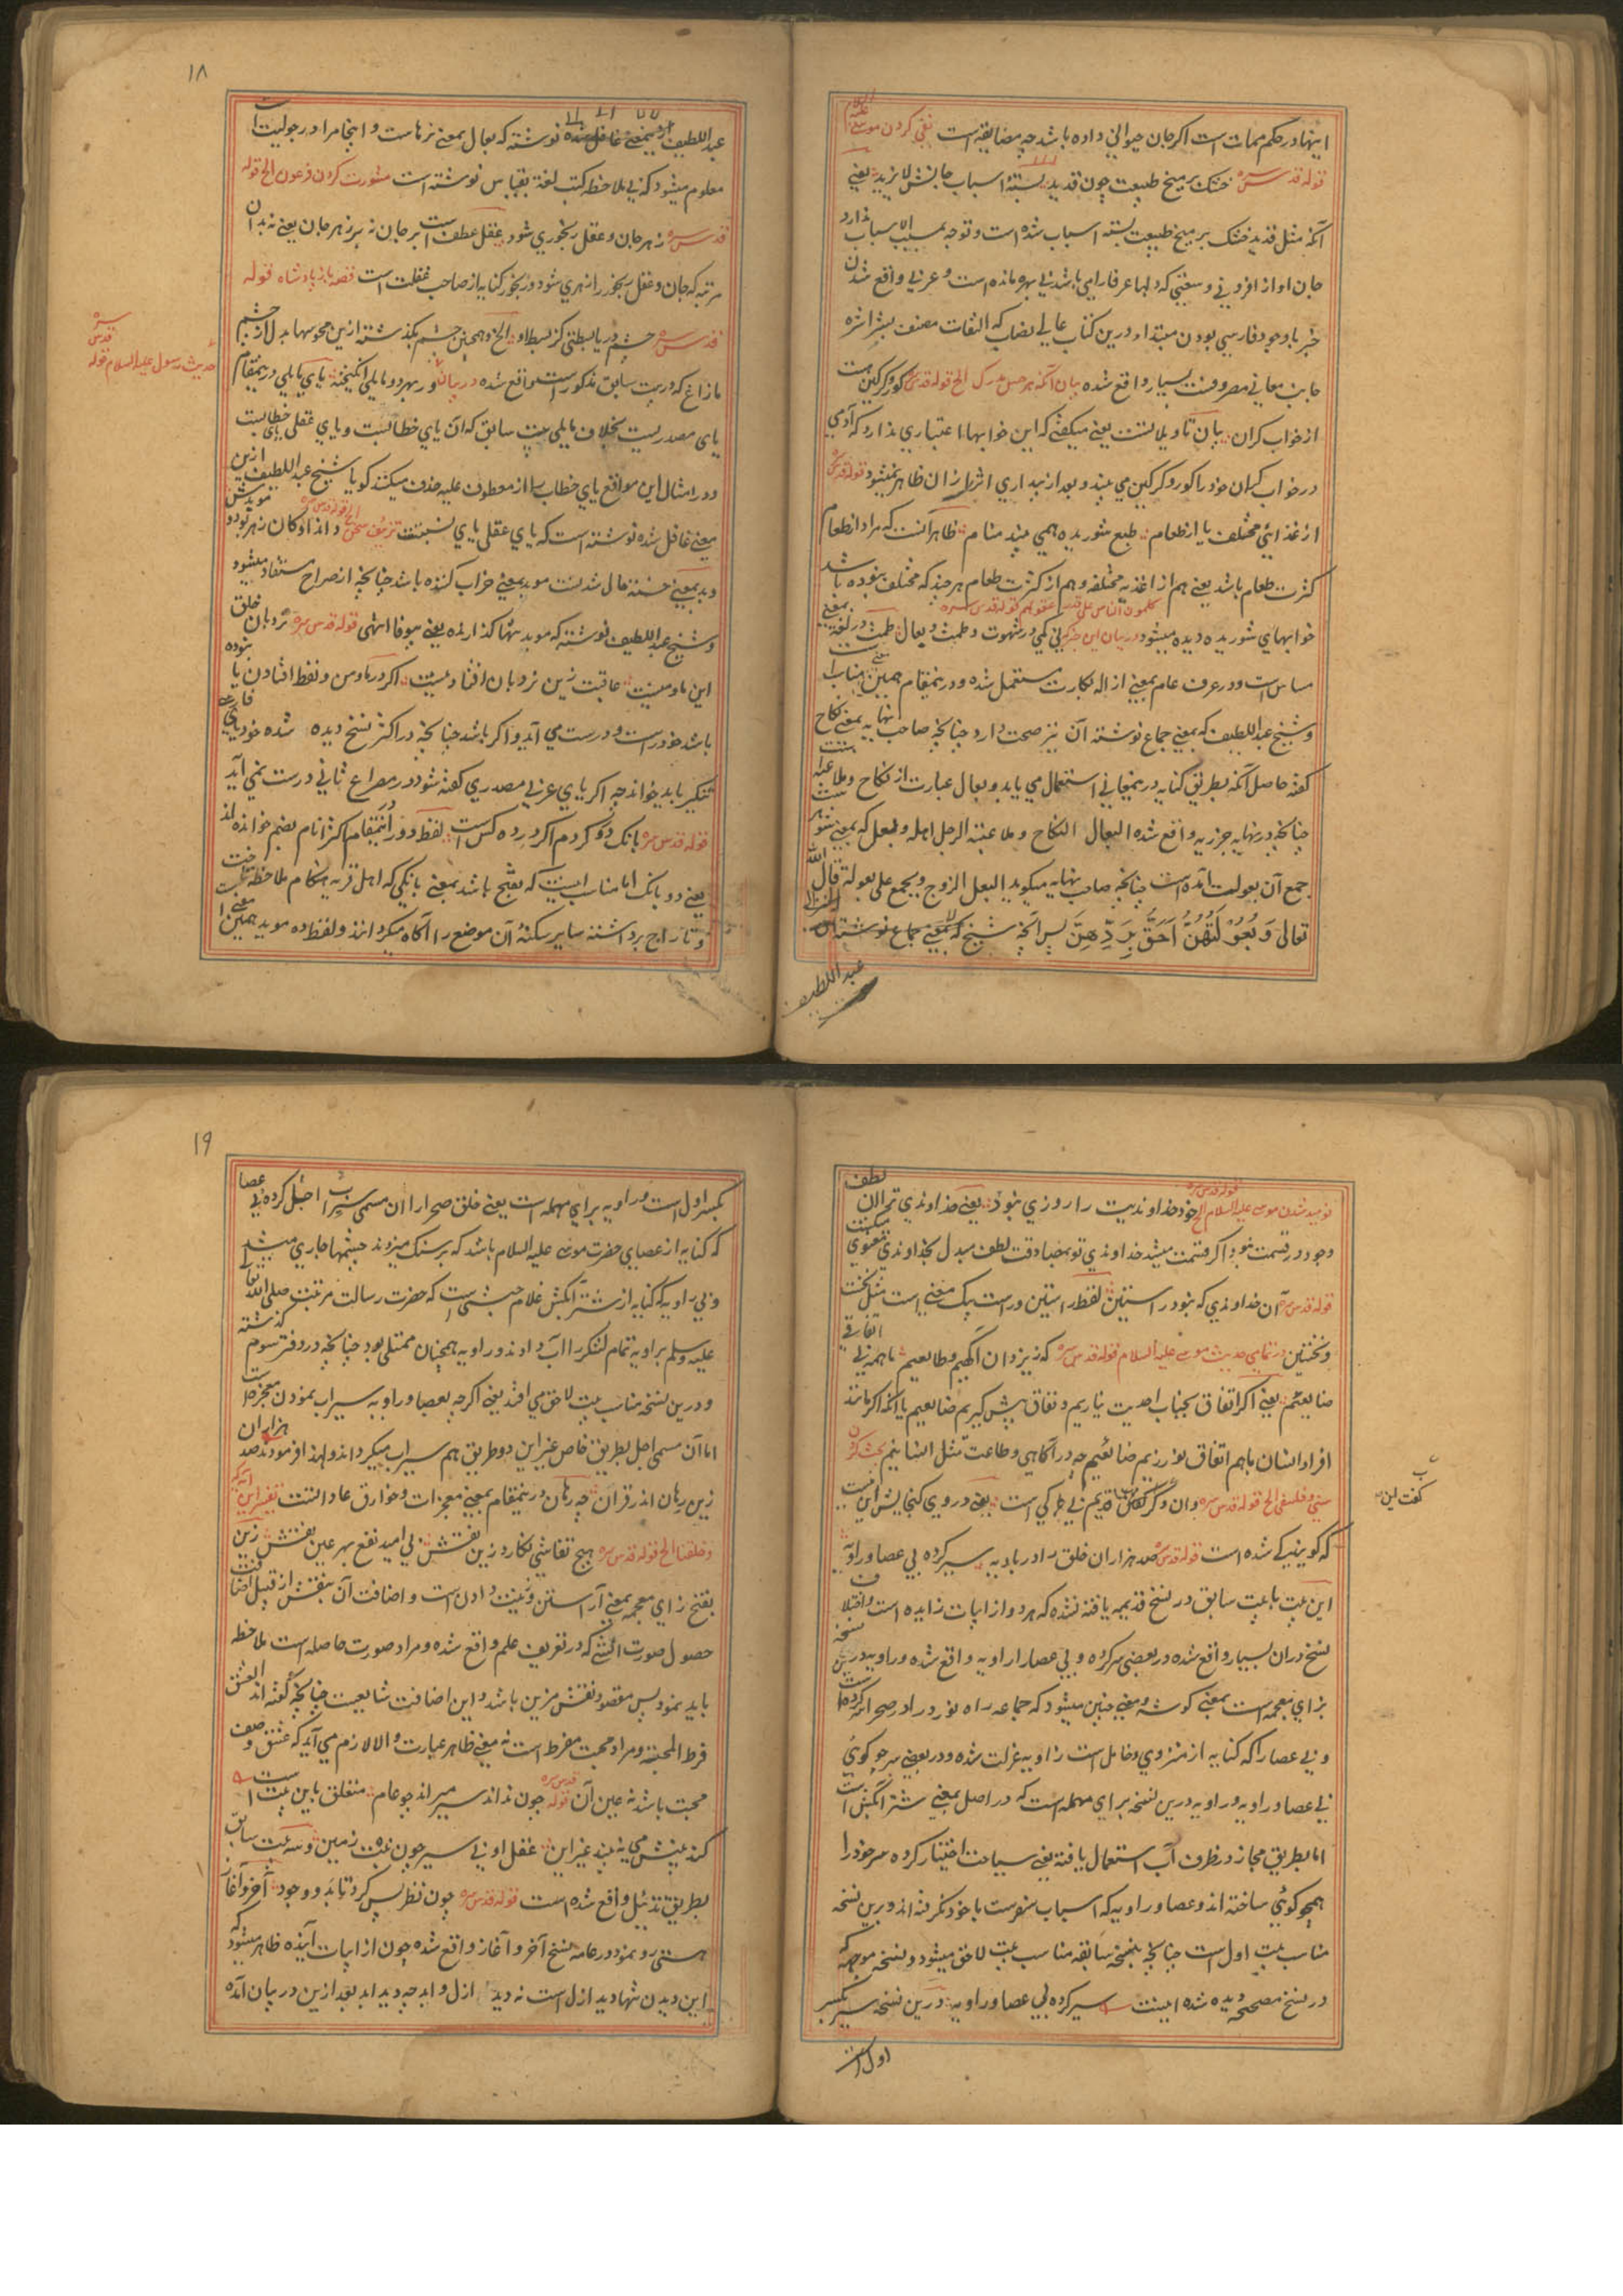 اینها در حکم ممات است اگر جان حیوانی داده باشد چه مضایقه است نفی کردن موسی علیه السلام
قوله قدس سره خشک بر میخ طبیعت چون قدید بسته اسباب جانش لا یزید یعنی
آنکه مثل قدید خشک بر میخ طبیعت بسته اسباب شده است و توجه بمسبب الاسباب ندارد
جان او از افزونی و وسعتی که دلها عرفا را می باشد بی بهره مانده است و عربی واقع شدن
خبر با وجود فارسی بودن مبتدا درین کتاب عالی نصاب که التفات مصنف بیشتر
جانب معانی مصروفست بسیار واقع شده بیان آنکه هر حس مدرک الخ قوله قدس سره کور و کرکین
از خواب گران بیان تاویلاتست یعنی میگفتی که این خوابها را اعتباری ندارد که آدمی
در خواب گران خود را کور و کرکین می بیند و بعد از بیداری اثر از آن ظاهر نمیشود قوله قدس سره
از غذای مختلف یا از طعام طبع شوریده همی بیند منام ظاهر آنست که مراد از طعام
کثرت طعام باشد یعنی هم از اغذیه مختلفه و هم از کثرت طعام هر چند که مختلف نبوده باشد
خوابهای شوریده دیده میشود در بیان این خبر کلموا الناس علی قدر عقولهم قوله قدس سره نی کمی در شهوت و طمث و بعال طمث در لغت بمعنی
مساس است و در عرف عام بمعنی ازاله بکارت مستعمل شده و درینمقام همین معنی مناسب
و شیخ عبد اللطیف که بمعنی جماع نوشته آن نیز صحت دارد چنانچه صاحب نهایه بمعنی نکاح
گفته حاصل آنکه بطریق کنایه درینمعانی استعمال می یابد و بعال عبارت از نکاح و ملاعبه
چنانچه در نهایه جزریه واقع شده البعال النکاح و ملاعبة الرجل اهله و بعل که بمعنی شوهر
جمع آن بعولت آمده است چنانچه صاحب نهایه میگوید البعل الزوج و یجمع علی بعولة قال الله
تعالی وَ بُعُولَتُهُنَّ اَحَقُّ بِرَدِّهِنَّ پس آنچه شیخ که بمعنی جماع نوشته
عبد اللطیف
۱۸
عبد اللطیف نوشته که بعال بمعنی نرهاست و اینجا مراد رجولیت
معلوم میشود که بی ملاحظه کتب لغت بقیاس نوشته است مشورت کردن فرعون الخ قوله
قدس سره زهر جان و عقل رنجوری شود عقل عطف است بر جان نه بر زهر جان یعنی نه بدان
مرتبه که جان و عقل رنجور را زهری شود و رنجور کنایه از صاحب غفلت است قصه باز پادشاه قوله
قدس سره چشم دریا بسطتی کز بسط او الخ و همچنین چشم بگذشته ازین محسوسها بدل از چشم
حدیث رسول علیه السلام قوله قدس سره
مازاغ که در بیت سابق مذکور است واقع شده در بیان ور بهر دو مایلی انگیخته یای مایلی درینمقام
یای مصدریست بخلاف مایلی بیت سابق که آن یای خطابست و یای عقلی یای خطابست
و در امثال این مواقع یای خطاب را از معطوف علیه حذف میکنند گویا شیخ عبد اللطیف ازین
معنی غافل شده نوشته است که یای عقلی یای نسبتست تزییف سخن الخ قوله قدس سره
و بد بمعنی خسته حال شدنست موبد بمعنی خراب کننده باشد چنانچه از صراح مستفاد میشود
و شیخ عبد اللطیف نوشته که موبد تنها گذارنده یعنی بیوفا انتهی قوله قدس سره نردبان خلق
این ما و منیست عاقبت زین نردبان افتادنیست اگر در ما و من و لفظ افتادن یا نبوده
باشد خود راست و درست می آید و اگر باشد چنانچه در اکثر نسخ دیده شده خود یای
تنکیر باید خواند چه اگر یای عربی مصدری گفته شود در مصراع ثانی درست نمی آید
قوله قدس سره بانک دو کردم اگر در ده کس است لفظ دو درینمقام اکثر انام بضم خوانده اند
یعنی دو بانک اما مناسب اینست که بفتح باشد بمعنی بانکی که اهل قریه هنکام ملاحظه
و تاراج برداشته سایر سکنه آن موضع را آگاه میگردانند و لفظ ده موید همین معنی
نومید شدن موسی علیه السلام الخ قوله قدس سره خود خداوندیت را روزی نبود یعنی خداوندی ترا آن لطف
وجود در قسمت نبود اگر قسمت میشد خداوندی تو بمصادقت لطف مبدل بخداوندی معنوی میگشت
قوله قدس سره آن خداوندی که نبود راستین لفظ راستین و راست یک معنی است مثل نخست
و نخستین در تمامی حدیث موسی علیه السلام قوله قدس سره که ز یزدان آگهیم و طایعیم ما همه بی اتفاقی
ضایعیم یعنی اگر اتفاق بجناب احدیت نیاریم و نفاق پیش گیریم ضایعیم یا آنکه اگر مانند
افراد انسان باهم اتفاق نورزیم ضایعیم چه در آگاهی و طاعت مثل انسانیم بحث کردن
سنی و فلسفی الخ قوله قدس سره وان دگر گفت این قدیم بی کی است یعنی در وی گنجایش این نیست
که گویند کی شده است قوله قدس سره صد هزاران خلق را در بادیه سیر کرده بی عصا و راویه
این بیت با بیت سابق در نسخ قدیمه یافته نشده که هر دو از ابیات زایده است و اختلاف
نسخ دران بسیار واقع شده در بعضی سر کرده و بی عصار ار اویه واقع شده و راویه درین نسخه
بزای معجمه است بمعنی گوشه و معنی چنین میشود که جماعه راه نورد را در صحرا گم کرده
و بی عصا را که کنایه از منزوی و خامل است زاویه عزلت شده و در بعضی سر چو گوی
بی عصا و راویه و راویه درین نسخه برای مهمله است که در اصل بمعنی شتر آبکش است
اما بطریق مجاز در ظرف آب استعمال یافته یعنی سیاحت اختیار کرده سر خود را
همچو گوی ساخته اند و عصا و راویه که اسباب سفرست با خود نگرفته اند و برین نسخه
مناسب بیت اول است چنانچه نسخه سابقه مناسب بیت لاحق میشود و نسخه موجه که
در نسخ مصححه دیده شده اینست سیر کرده بی عصا و راویه درین نسخه سیر بکسر
اول است
گفت این
۱۹
بکسر اول است و راویه برای مهمله است یعنی خلق صحرا را آن مسمی سیراب اجل کرده بی عصا
که کنایه از عصای حضرت موسی علیه السلام باشد که بر سنگ میزدند چشمها جاری میشد
و بی راویه که کنایه از شتر آبکش غلام حبشی است که حضرت رسالت مرتبت صلی الله
علیه و سلم براویه تمام لشکر را آب دادند و راویه همچنان ممتلی بود چنانچه در دفتر سوم گذشته
و درین نسخه مناسب بیت لاحق می افتد یعنی اگر چه بعصا و راویه سیراب نمودن معجزه است
اما آن مسمی اجل بطریق خاص غیر این دو طریق هم سیراب میگرداند و لهذا فرمودند صد هزاران
زین رهان اندر قران چه رهان درینمقام بمعنی معجزات و خوارق عاداتست تفسیر این آیه که
و خلقنا الخ قوله قدس سره هیچ نقاشی نگارد زین نقش بی امید نفع بهر عین نقش زین
بفتح زای معجمه بمعنی آراستن و زینت دادن است و اضافت آن بنقش از قبیل اضافت
حصول صورت الشئ که در تعریف علم واقع شده و مراد صورت حاصله است ملاحظه
باید نمود پس مقصود نقش مزین باشد و این اضافت شایعیست چنانچه گفته اند العشق
فرط المحبة و مراد محبت مفرط است نه معنی ظاهر عبارت و الا لازم می آید که عشق وصف
محبت باشد نه عین آن قوله قدس سره چون نداند سیر میراند چو عام متعلق باین بیت است
کند بینش می نه بیند غیر این عقل او بی سیر چون نبت زمین و سه بیت سابق
بطریق تذییل واقع شده است قوله قدس سره چون نظر پس کرد تا بدو وجود آخر و آغاز
هستی رو نمود در عامه نسخ آخر و آغاز واقع شده چون از ابیات آینده ظاهر میشود که
این دیدن تنها دید ازل است نه دید ازل و ابد چه دید ابد بعد ازین در بیان آمده